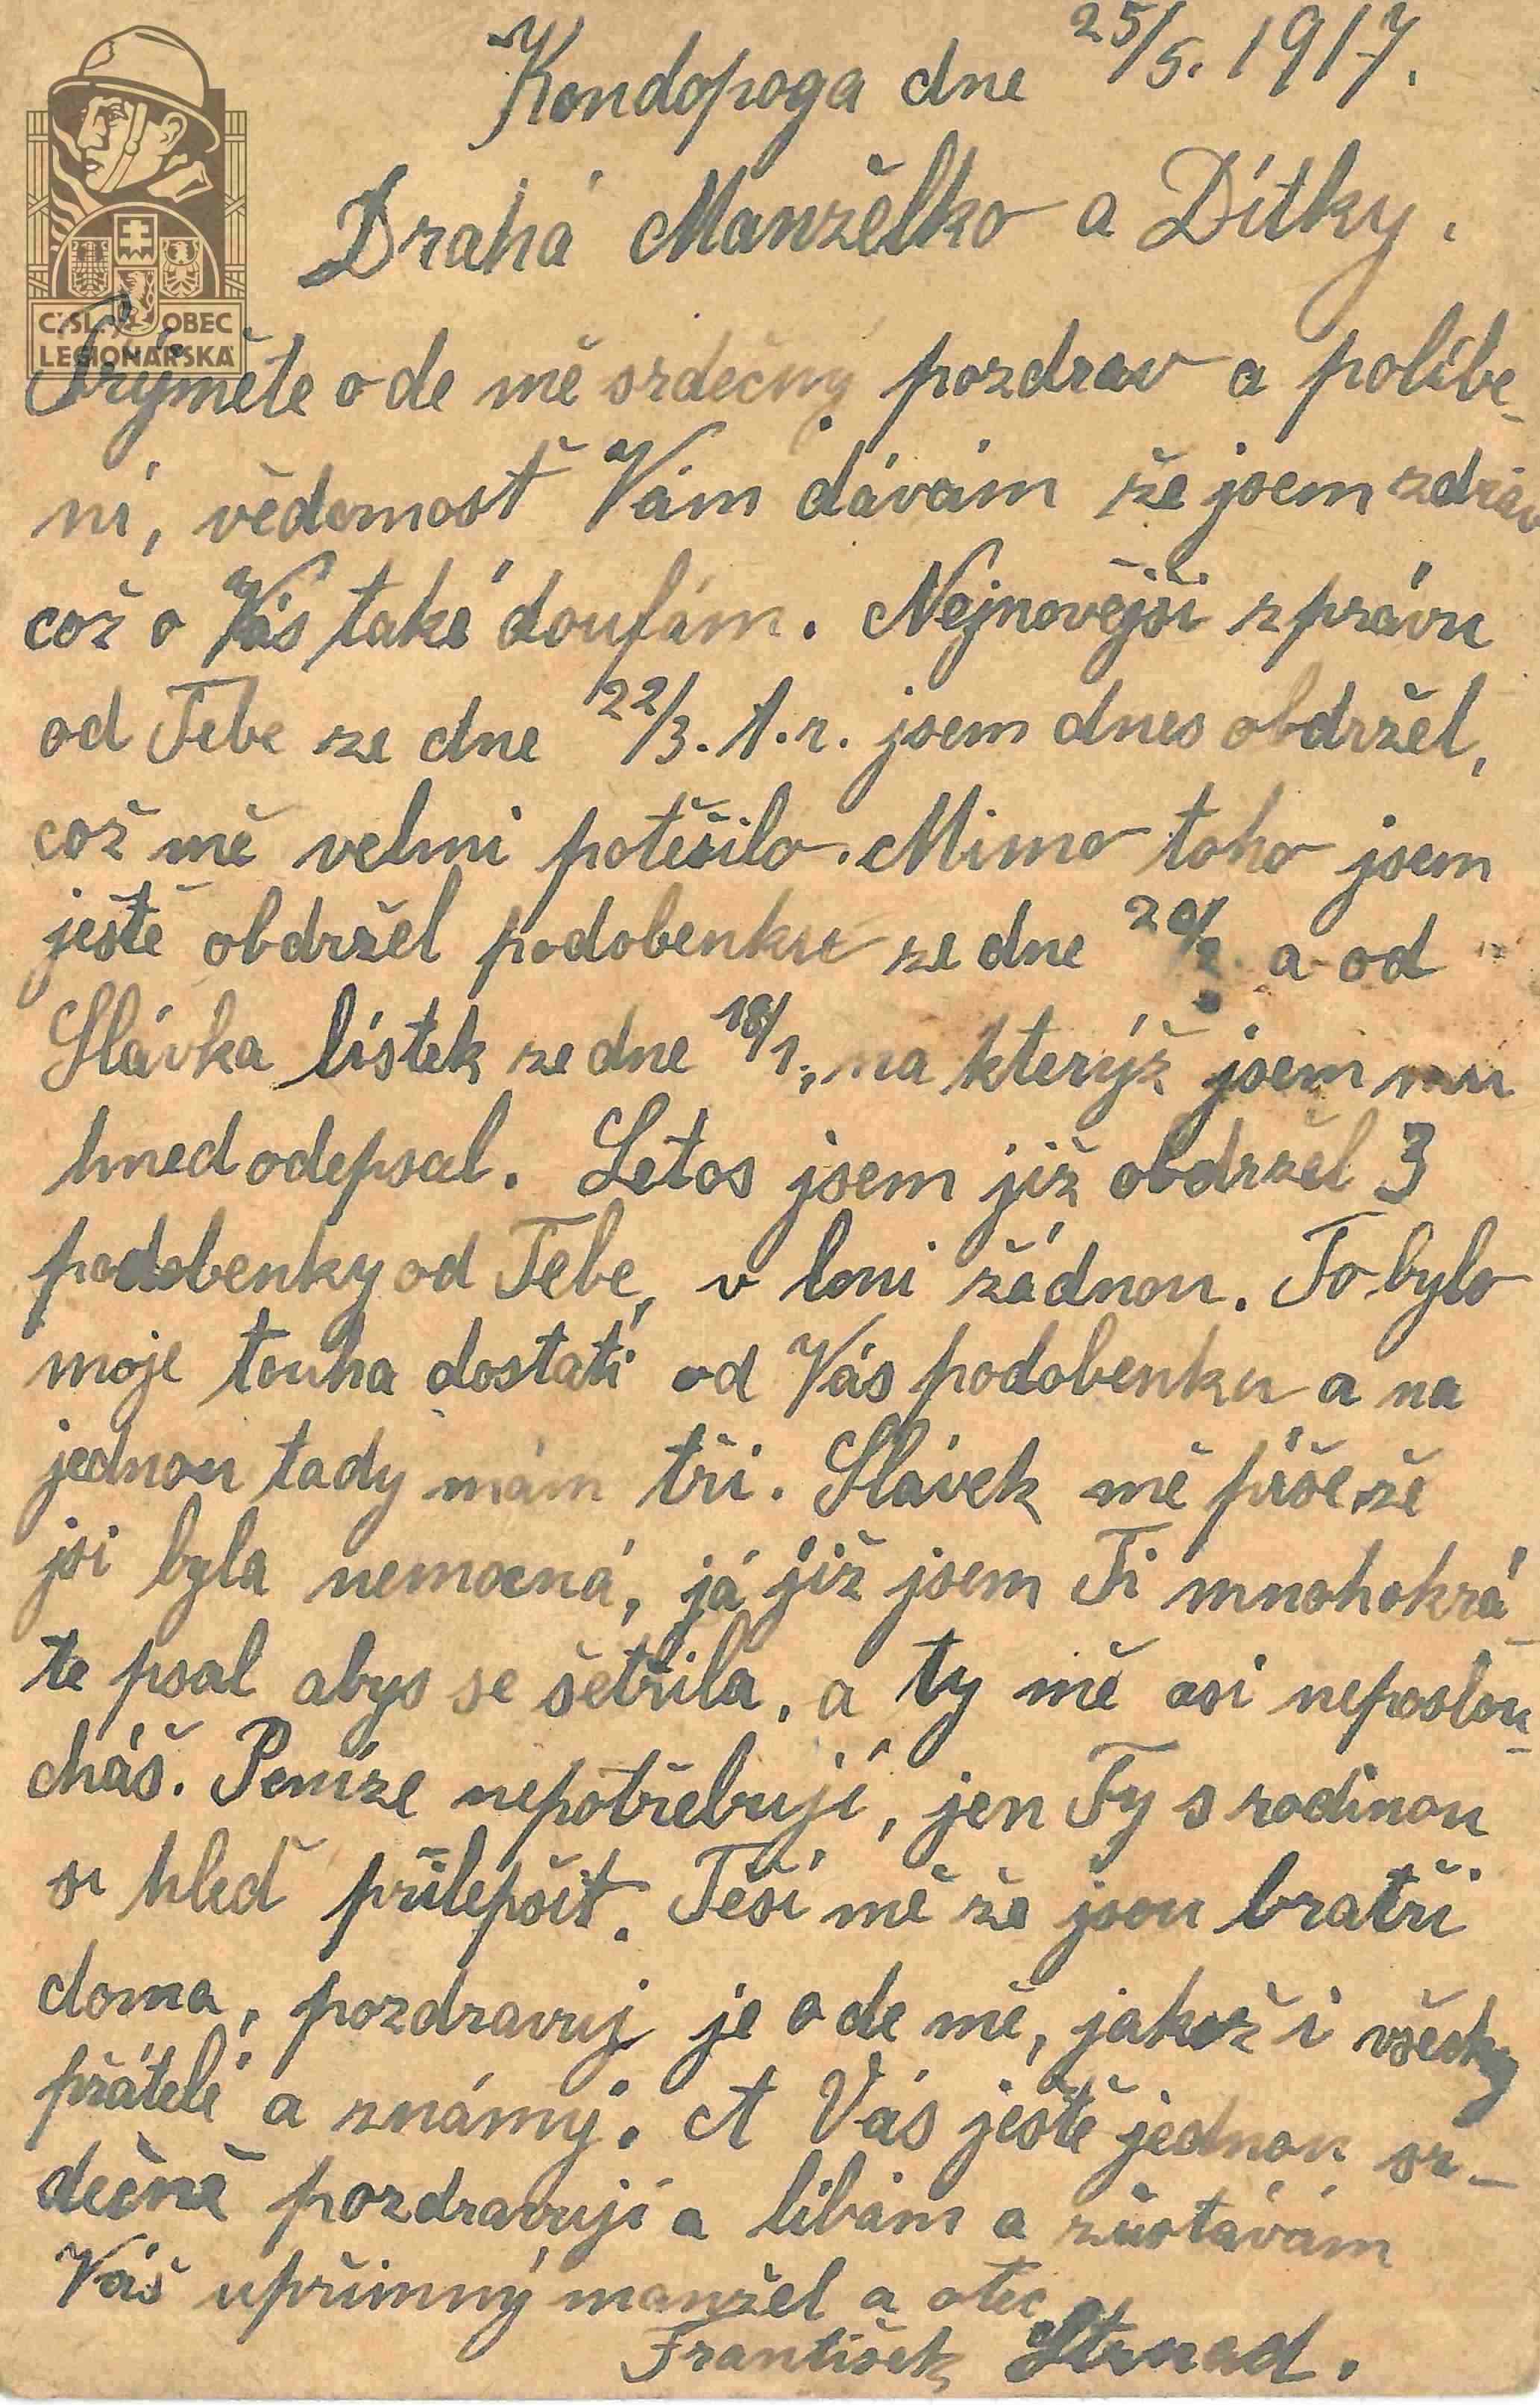 Kondopoga dne 25/5. 1917.
Drahá Manželko a Dítky.
ČSL. OBEC
LEGIONÁŘSKÁ
Přijměte ode mě srdečný pozdrav a políbe-
ní, vědomosť Vám dávám že jsem zdráv
což o Vás také doufám. Nejnovější zprávu
od Tebe ze dne 22/3. t.r. jsem dnes obdržel,
což mě velmi potěšilo. Mimo toho jsem
ještě obdržel podobenku ze dne a od
Slávka lístek ze dne 18/1., na kterýž jsem mu
hned odepsal. Letos jsem již obdržel 3
podobenky od Tebe, v loni žádnou. To bylo
moje touha dostati od Vás podobenku a na
jednou tady mám tři. Slávek mě píše že
jsi byla nemocná, já již jsem Ti mnohokrá-
te psal abys se šetřila, a ty mě asi neposlou-
cháš. Peníze nepotřebuji, jen Ty s rodinou
si hleď přilepšit. Těší mě že jsou bratři
doma, pozdravuj je ode mě, jakož i všecky
přátelé a známý. A Vás ještě jednou sr-
dečně pozdravuji a líbám a zůstávám
Váš upřímný manžel a otec
František Strnad.